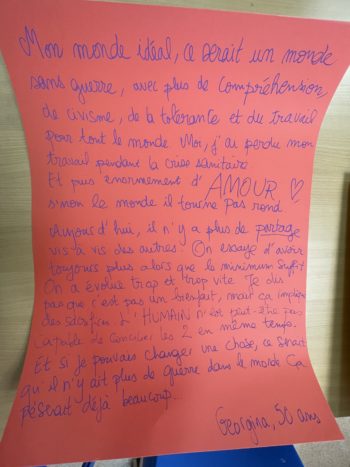 Mon monde idéal, ce serait un monde
sans guerre, avec plus de compréhension,
de civisme, de la tolérance et du travail
pour tout le monde. Moi, j'ai perdu mon
travail pendant la crise sanitaire.
Et puis énormément d'AMOUR ♡
sinon le monde il tourne pas rond.
Aujourd'hui, il n'y a plus de partage
vis à vis des autres. On essaye d'avoir
toujours plus alors que le minimum suffit
On a évolué trop et trop vite. Je dis
pas que c'est pas un bienfait, mais ça implique
des sacrifices. L'HUMAIN n'est peut-être pas
capable de concilier les 2 en même temps.
Et si je pouvais changer une chose, ce serait
qu'il n'y ait plus de guerre dans le monde. Ça
pèserait déjà beaucoup...
Georgina, 50 ans